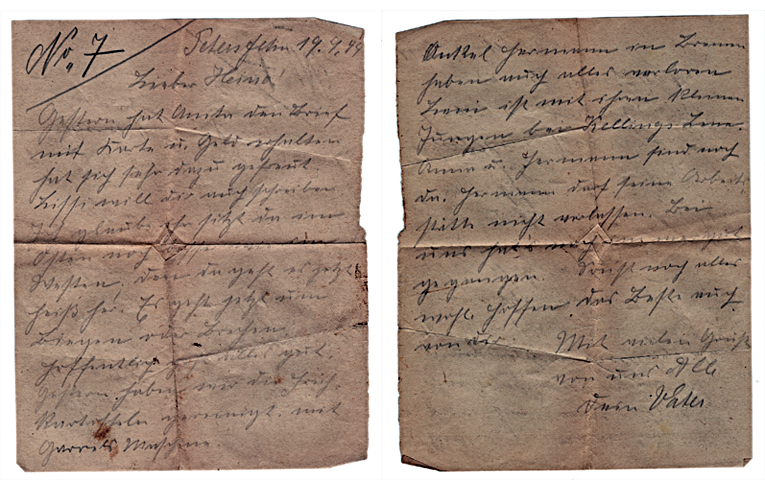 No. 7
Petersfehn 19.9.44
Lieber Heino!
Gestern hat Anita den Brief
mit Karte u. Geld erhalten
hat sich sehr dazu gefreut.
Lissi will dir auch schreiben
Ich glaube Ihr sitzt da im
Osten noch besser wie im
Westen, den da geht es jetzt
heiß her. Es geht jetzt um
Biegen oder Brechen.
Hoffentlich geht alles gut.
Gestern haben wir die Früh-
kartoffeln gereinigt mit
Gerrels Maschine.
Onkel Hermann in Bremen
haben auch alles verloren
ist mit ihren kleinen
Jungen bei Kellings Lene.
Anna u. Hermann sind noch
da. Hermann darf seine Arbeits-
stätte nicht verlassen. Bei
uns hat's noch gut
gegangen. Sonst noch alles
wohl hoffen das Beste auch
von dir. Mit vielen Grüße
von uns Alle
Dein Vater